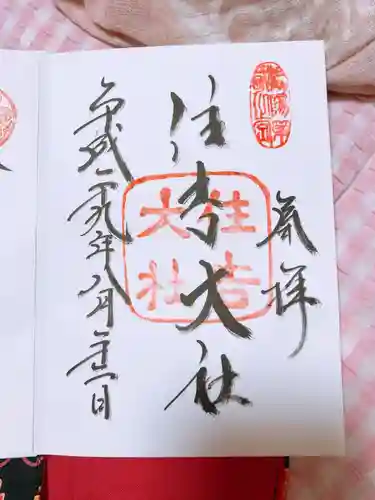 奉拝
住吉大社
住吉
大社
平成二十九年八月二十一日